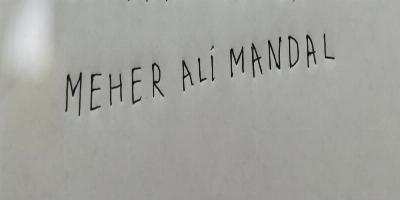 MEHER ALi MANDAL